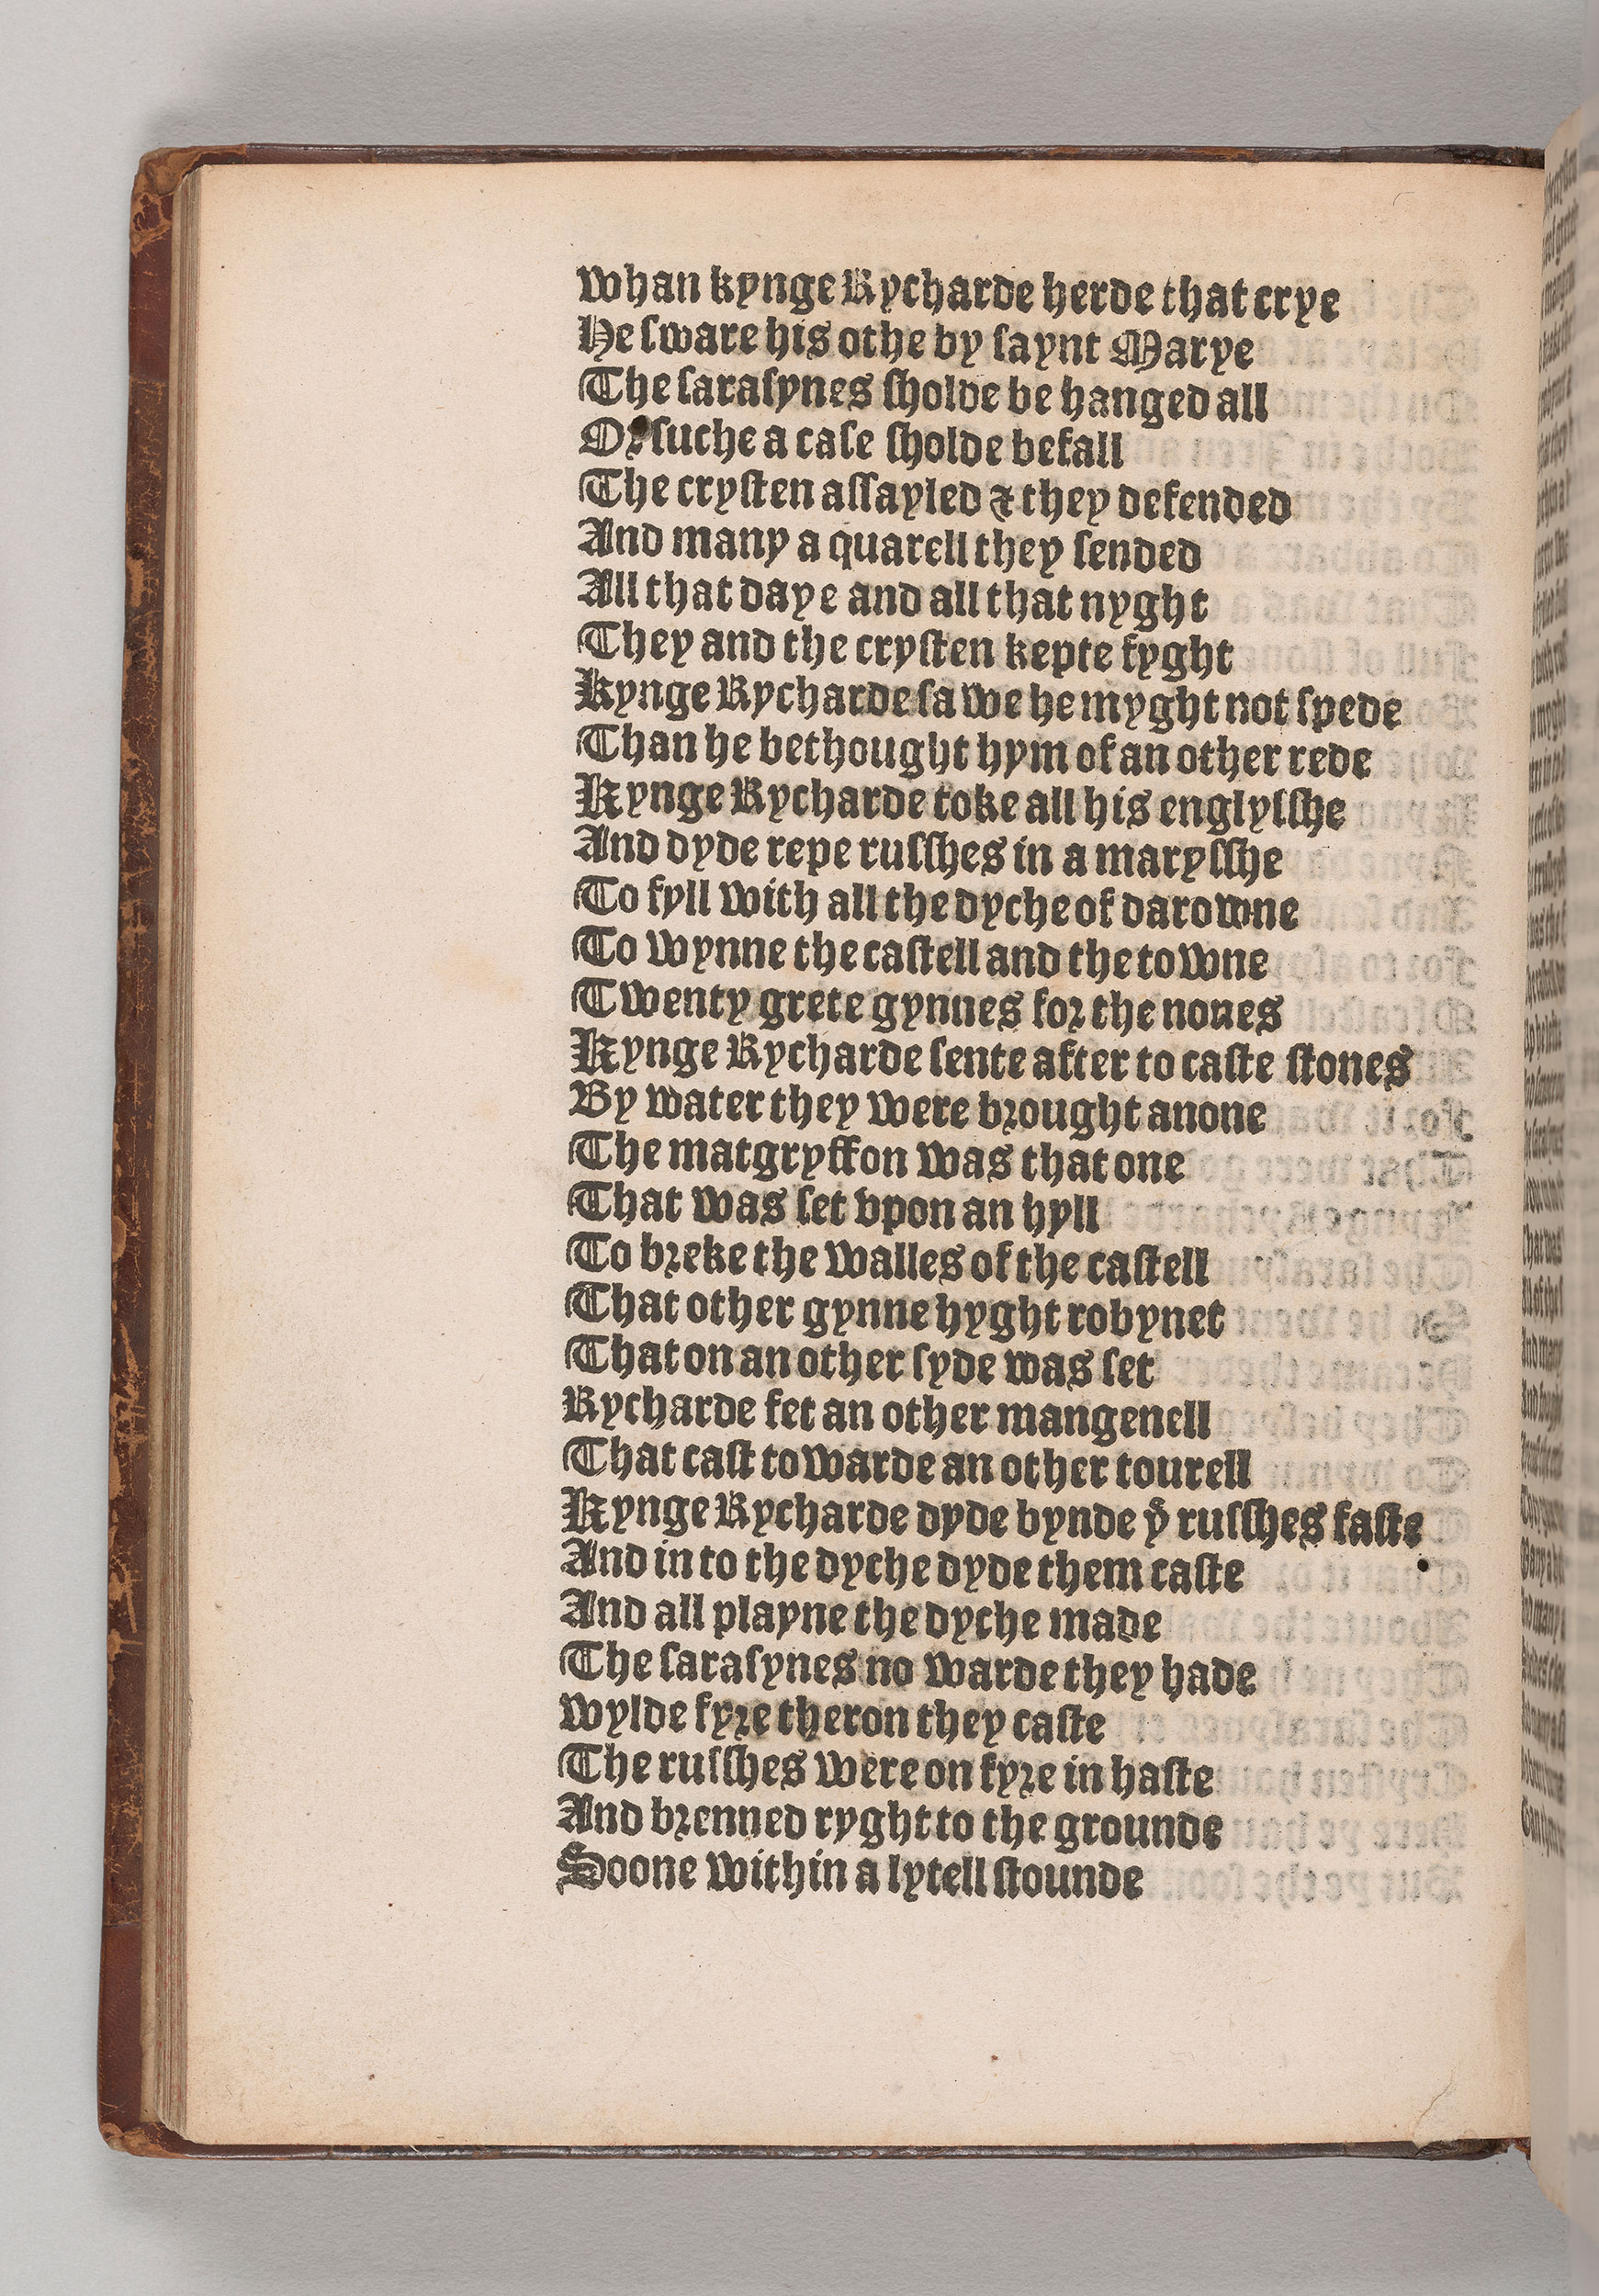 Whan kynge Rycharde herde that crye
He sware his othe by saynt Marye
The sarasynes sholde be hanged all
Or suche a case sholde befall
The crysten assayled & they defended
And many a quarell they sended
All that daye and all that nyght
They and the crysten kepte fyght
Kynge Rycharde sawe he myght not spede
Than he bethought hym of an other rede
Kynge Rycharde toke all his englysshe
And dyde repe russhes in a marysshe
To fyll with all the dyche of darowne
To wynne the castell and the towne
Twenty grete gynnes for the nones
Kynge Rycharde sente after to caste stones
By water they were brought anone
The matgryffon was that one
That was set vpon an hyll
To breke the walles of the castell
That other gynne hyght robynet
That on an other syde was set
Rycharde fet an other mangenell
That cast towarde an other tourell
Kynge Rycharde dyde bynde yͤ russhes faste
And in to the dyche dyde them caste
And all playne the dyche made
The sarasynes no warde they hade
Wylde fyre theron they caste
The russhes were on fyre in haste
And brenned ryght to the grounde
Soone within a lytell stounde